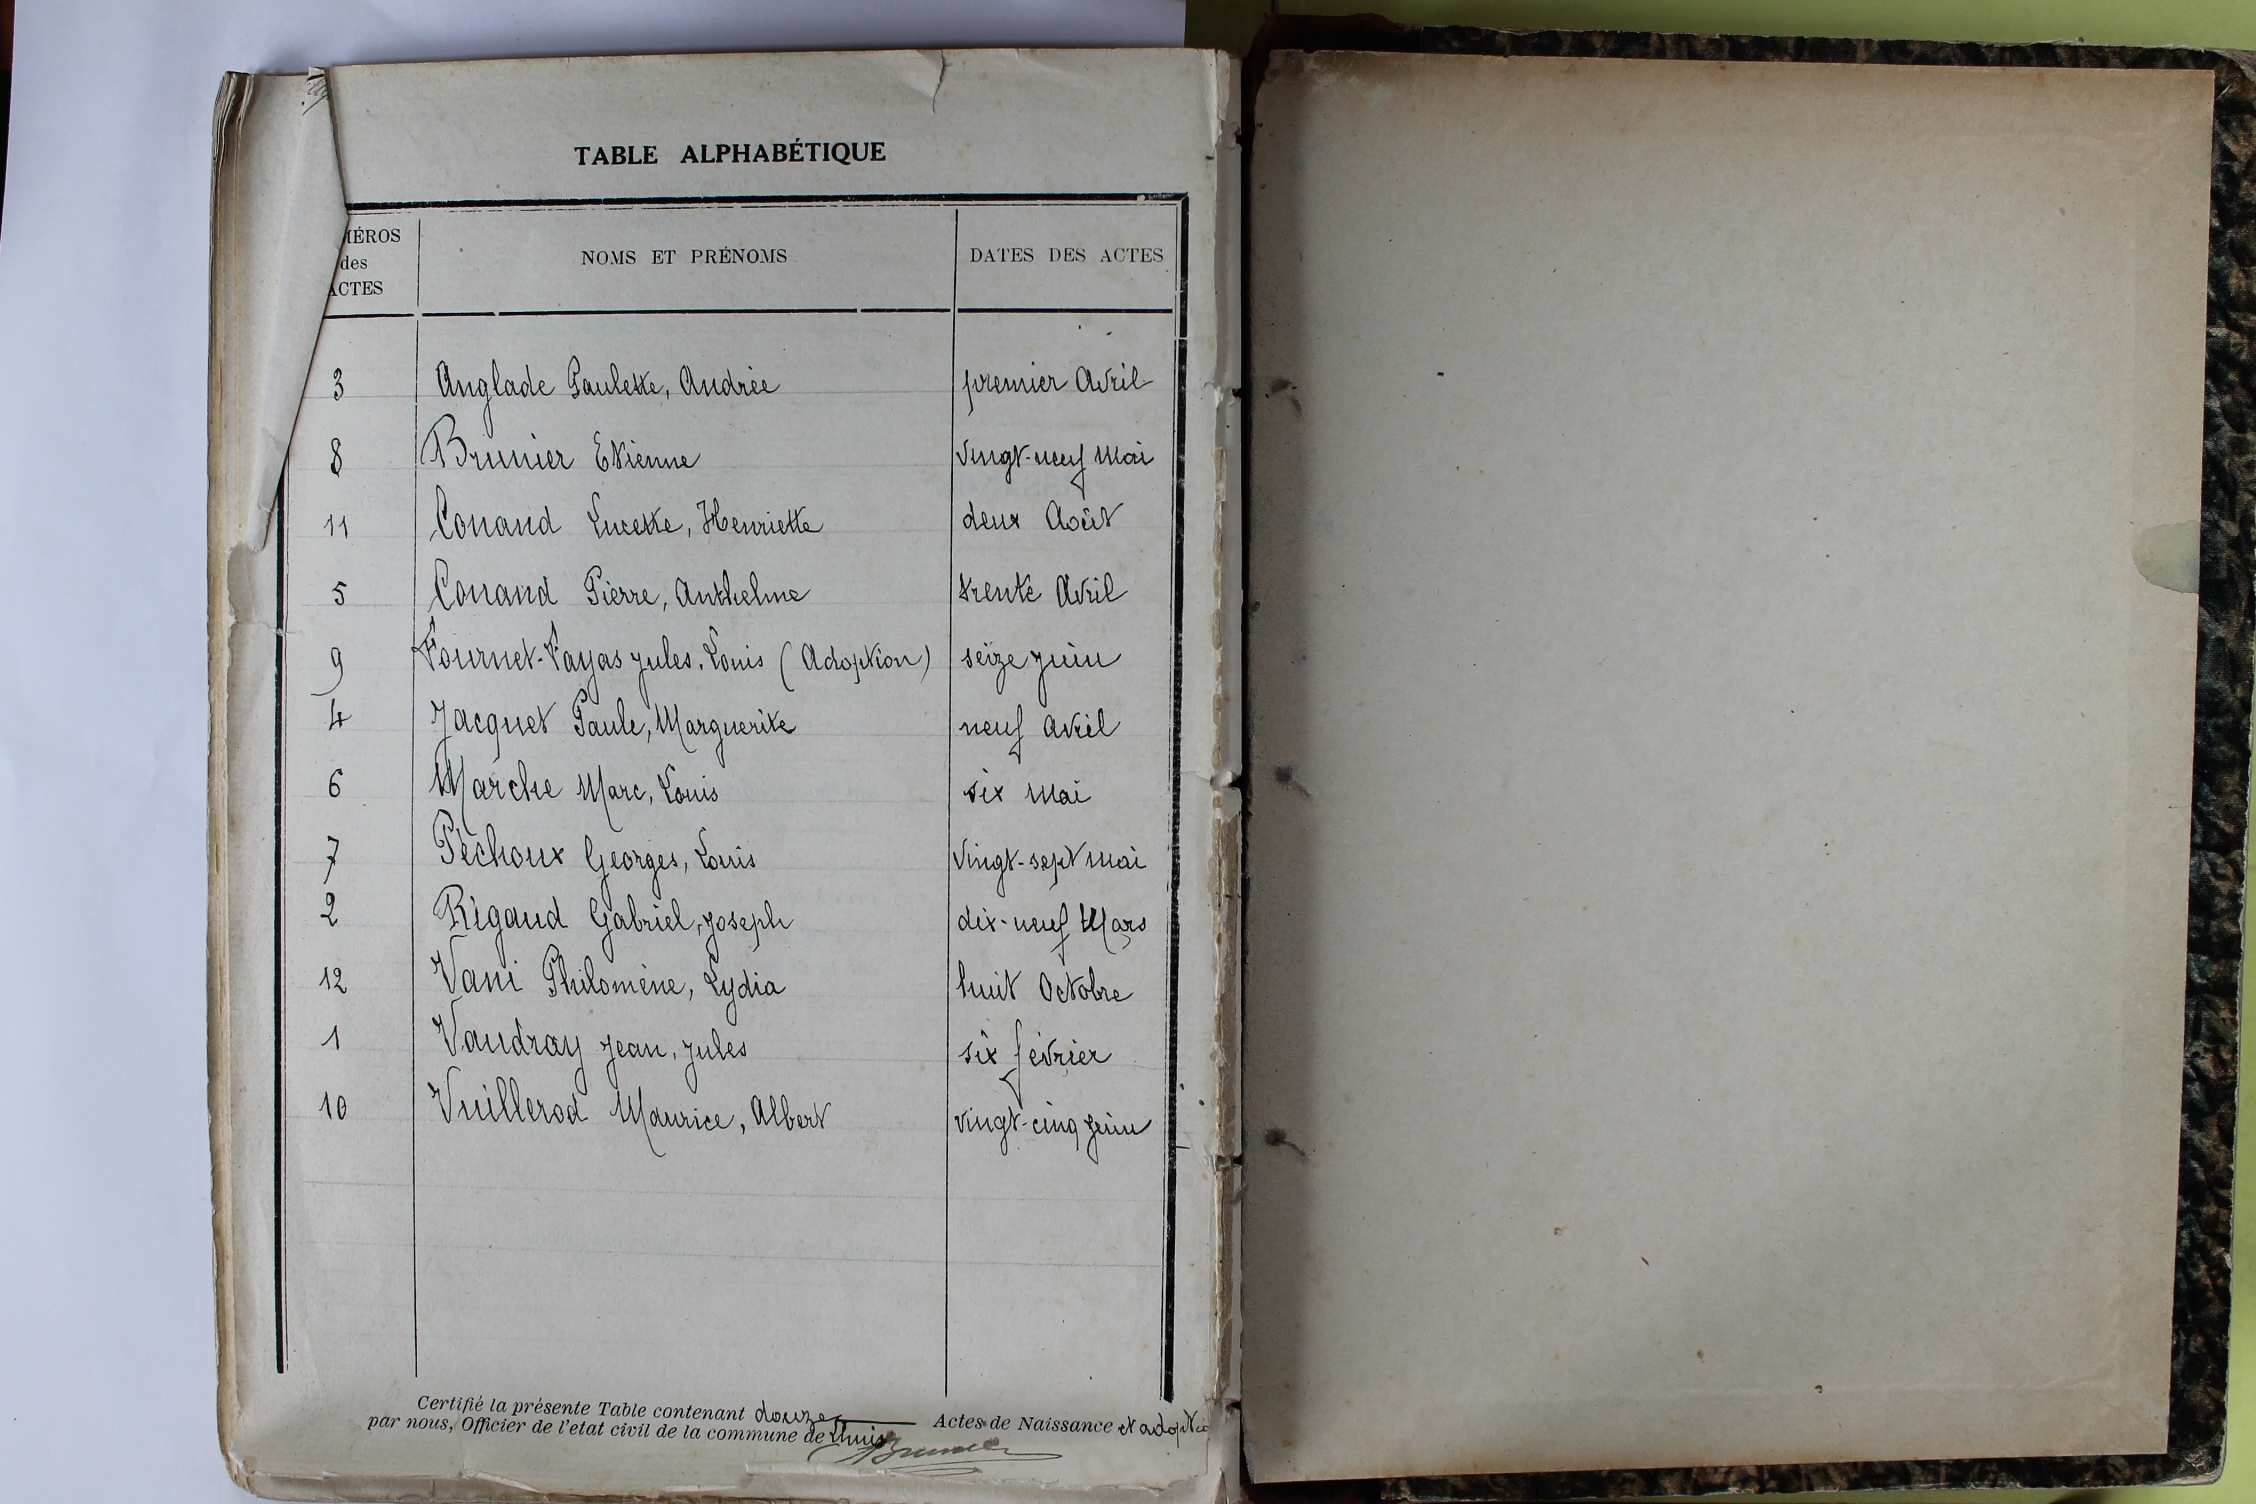 TABLE ALPHABÉTIQUE
MÉROS
des
ACTES
NOMS ET PRÉNOMS
DATES DES ACTES
3 Anglade Paulette, Andrée premier Avril
8 Brunier Etienne vingt-neuf Mai
11 Conand Lucette, Henriette deux Août
5 Conand Pierre, Anthelme trente Avril
9 Fournet-Fayas Jules, Louis (Adoption) seize Juin
4 Jacquet Paule, Marguerite neuf Avril
6 Marche Marc, Louis six Mai
7 Péchoux Georges, Louis vingt-sept Mai
2 Rigaud Gabriel, Joseph dix-neuf Mars
12 Vani Philomène, Lydia huit Octobre
1 Vaudray Jean, Jules six février
10 Vuillerod Maurice, Albert vingt-cinq Juin
Certifié la présente Table contenant douze Actes de Naissance et adoptio
par nous, Officier de l'etat civil de la commune de Lhuis
Brunier